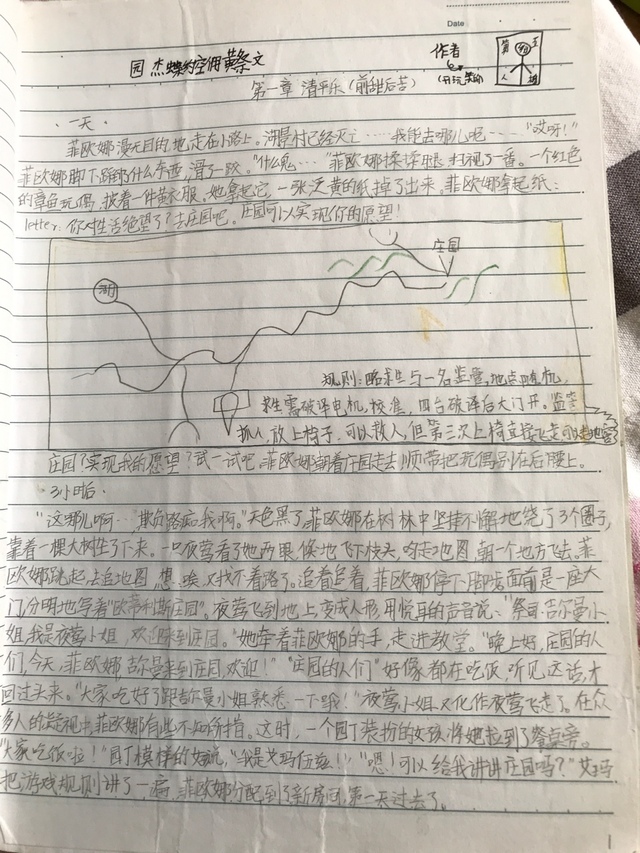 Date
园 杰 蝶约空佣黄祭文
作者
(开玩笑的)
第一章 清平乐(前甜后苦)
一天·
菲欧娜漫无目的地走在小路上。湖景村已经灭亡……我能去哪儿呢……"哎呀!"
菲欧娜脚下踩那什么东西,滑了一跤。"什么鬼…"菲欧娜揉揉眼扫视了一番。一个红色
的章鱼玩偶,披着一件黄衣服。她拿起它,一张泛黄的纸掉了出来,菲欧娜拿起纸:
letter: 你对生活绝望了?去庄园吧。庄园可以实现你的愿望!
庄园
湖
规则:四名求生与一名监管,地点随机,
求生需破译电机,校准,四台破译后大门开。监管
抓人,放上椅子,可以救人,但第三次上椅直接飞走可以走地窖
庄园?实现我的愿望?试一试吧,菲欧娜朝着庄园走去!顺带把玩偶别在后腰上。
3小时后·
"这哪儿啊…,欺负路痴我啊。"天色黑了,菲欧娜在树林中坚持不懈地绕了3个圈子,
靠着一棵大树坐了下来。一只夜莺看了她两眼,倏地飞下枝头,叼走地图,朝一个地方飞去,菲
欧娜跳起,去追地图 想,唉,又找不着路了。追着追着,菲欧娜停下脚步,面前是一座大
门,分明地写着"欧蒂利斯庄园"。夜莺飞到地上,变成人形,用悦耳的声音说:"祭司·吉尔曼小
姐,我是夜莺小姐,欢迎来到庄园。"她牵着菲欧娜的手,走进教堂。"晚上好,庄园的人
们,今天,菲欧娜·吉尔曼来到庄园,欢迎!""庄园的人们"好像都在吃饭,听见这话,才
回过头来。"大家吃好了跟吉尔曼小姐熟悉一下哦!"夜莺小姐又化作夜莺飞走了。在众
多人的凝视中,菲欧娜有些不知所措。这时,一个园丁装扮的女孩将她拉到了餐桌旁。
"大家吃饭啦!"园丁模样的女孩说,"我是艾玛伍兹!""嗯!可以给我讲讲庄园吗?"艾玛
把游戏规则讲了一遍,菲欧娜分配到了新房间,第一天过去了。
1